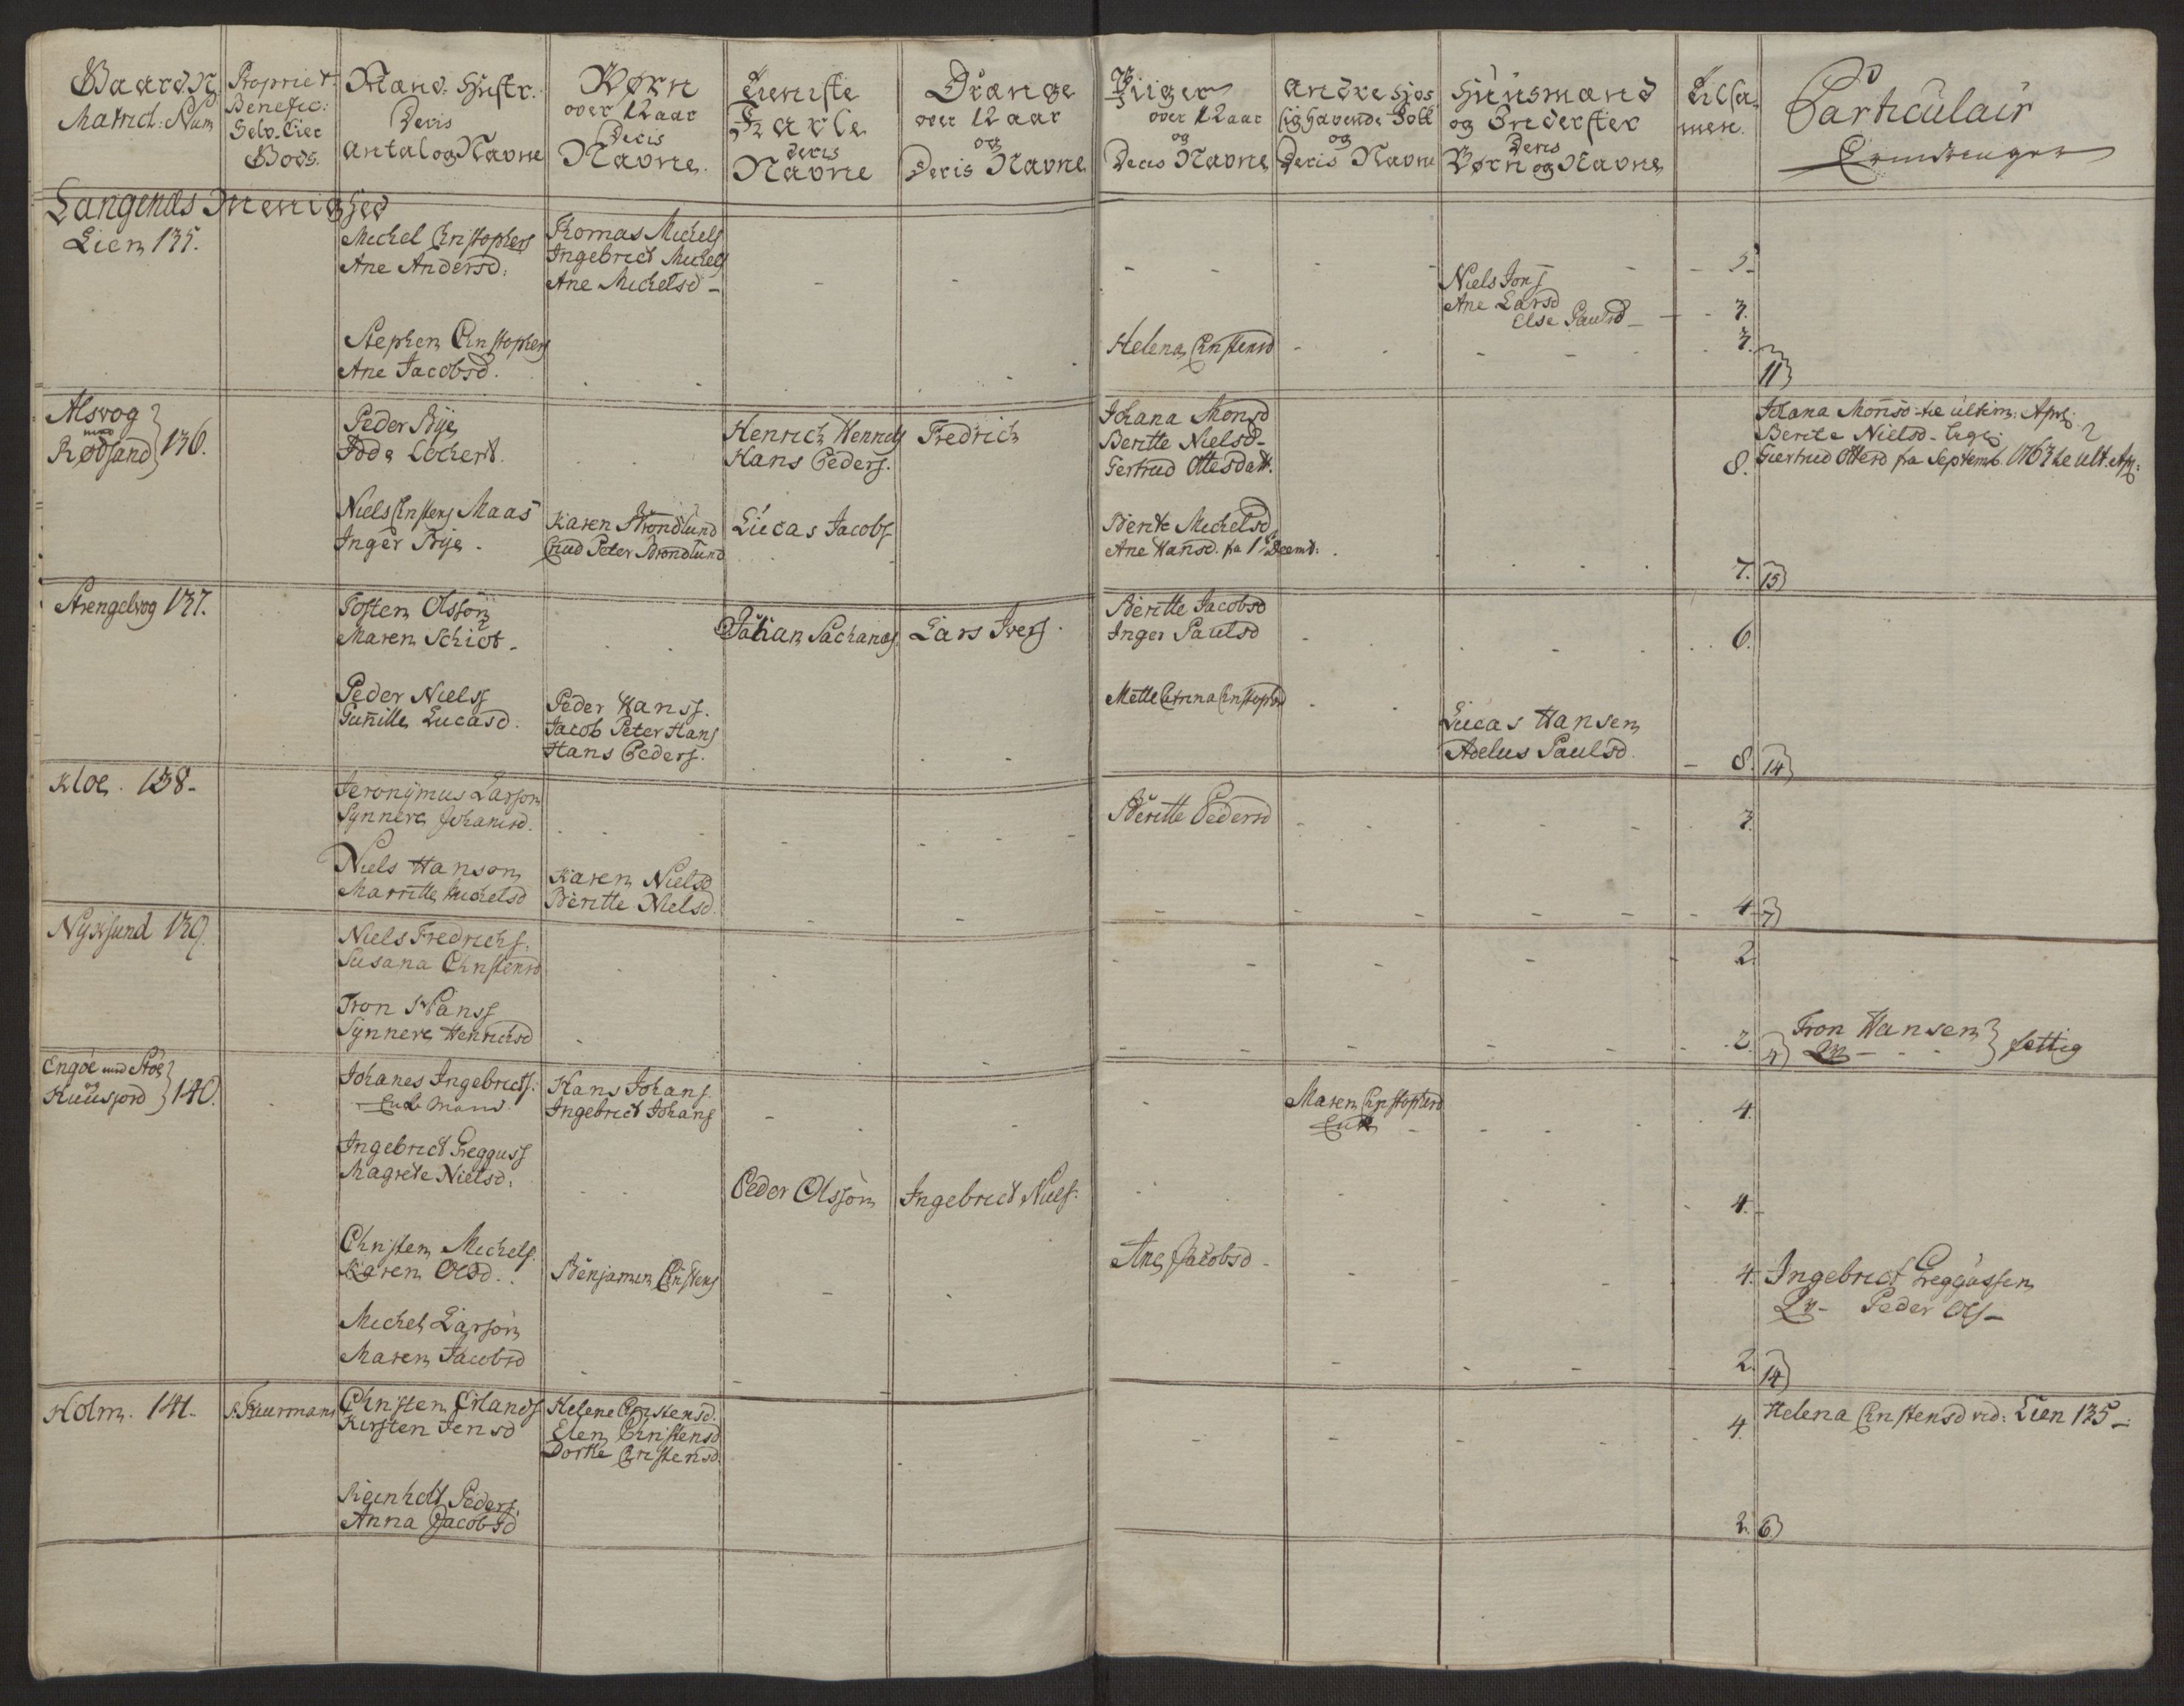 Gaard. N.
Matricl: Num
Propriet.
Benefic:
Selv. Eier
Bods.
Mand. Hustr.
Deris
Antal og Navne
Børn
over 12 aar
Deris
Navne.
Tieniste
Karle
deris
Navne
Drænge
over 12 aar
og
Deris Navne
Piiger
over 12 aar
og
Deris Navne
Andre hjos
sig havende Folk
og
Deris Navne
Huusmænd
og Inderster
Deris
Børn og Navne
Tilsa-
men.
Particulair
Erindringer
Langenæs Menighed
Lien 135.
Michel Christophers
Ane Andersd:
Thomas Michels
Ingebrict Michels
Ane Michelsd -
5.
Niels Jons
Ane Larsd
Else Paulsd -
3.
Stephen Christophers
Ane Jacobsd.
Helena Christensd
3.
11
Alsvog
med
Rødsand
136.
Peder Bye
Adda Lochert.
Henrich Henrichs
Hans Peders.
Fredrich
Johana Monsd
Beritte Nielsd-
Gertrud Ottesdatt.
8.
Johana Monsd-te ultim: Apr:
Berite Nielsd- lige
Giertrud Ottesd fra Septemb. 1763 te ult. Apr:
Niels Christens Maas
Inger Bye.
Karen Brondlund
Cnud Peter Brondlund
Lucas Jacobs
Berite Michelsd
Ane Hansd. fra 1 Decemb:
7.
15
Strengelvog 137.
Tosten Olssøn
Maren Schiøt-
Johan Sachariæs.
Lars Ivers.
Beritte Jacobsd
Inger Paulsd
6.
Peder Nielss
Gunille Lucasd.
Peder Hanss.
Jacob Peter Hans
Hans Peders.
Mette Catrina Christophsd
Lucas Hansen
Adelus Paulsd.
8.
14
Kloe. 138-
Jeronymus Larson
Synnere Johansd.
Beritte Pedersd
3.
Niels Hanson
Marritte Michelsd
Karen Nielsd
Beritte Nielsd.
4.
7
Nyksund 139.
Niels Fredrichs.
Susana Christensd
2.
Tron Hanss
Synnere Henrichsd
2.
4
Tron Hansen
Qv-
fattig
Engøe med Støe
og
Kuusjord
140.
Johanes Ingebricts.
Enke Mand.
Hans Johans.
Ingebrict Johans
Maren Christophersd
Enke
4.
Ingebrict Gregguss
Magrete Nielsd:
Peder Olssøn
Ingebrict Niels.
4.
Christen Michels.
Karen Olsd.
Benjamin Christens
Ane Jacobsd-
4.
Ingebrict Greggussen
Qv- Peder Ols-
Michel Larsøn
Maren Jacobsd
2.
14
Holm. 141.
Christen Erlands
Kirsten Jensd
Helene Christensd.
Elen Christensd
Dorthe Christensd.
4.
Helena Christensd vid: Lien 135-
Reinholt Peders.
Anna Jacobsd
2.
6